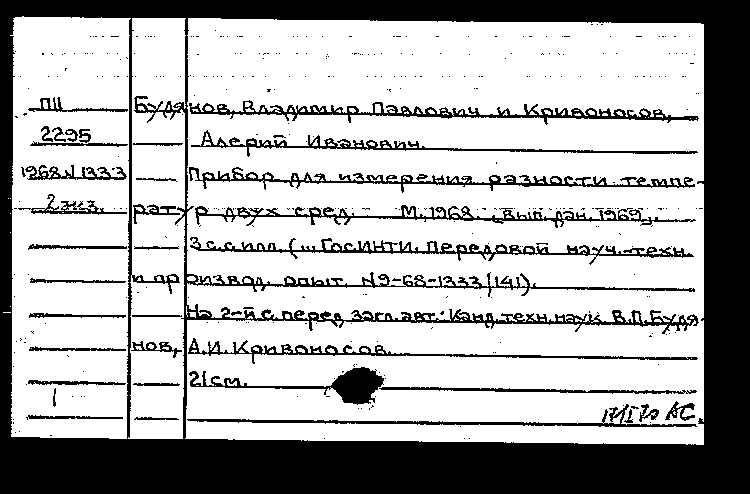 ПII Будянов, Владимир Павлович и Кривоносов,
2295 Алерий Иванович.
1968 N 1333 Прибор для измерения разности темпе-
2 экз. ратур двух сред. М., 1968. „Вып. дан. 1969„.
3 с. с илл. (... ГосИНТИ. Передовой науч.-техн.
и производ. опыт. N9-68-1333/141).
На 2-й с. перед загл. авт.: Канд. техн. наук В.П. Будя-
нов, А.И. Кривоносов.
21 см.
1
17/I 70 АС.